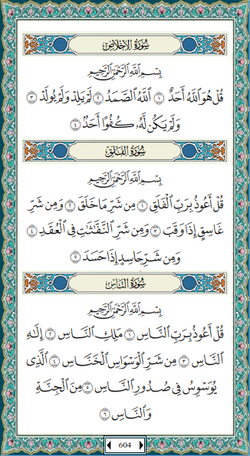 سُورَةُ الإِخْلَاصِ
بِسْمِ اللَّهِ الرَّحْمَٰنِ الرَّحِيمِ
قُلْ هُوَ اللَّهُ أَحَدٌ ١ اللَّهُ الصَّمَدُ ٢ لَمْ يَلِدْ وَلَمْ يُولَدْ ٣
وَلَمْ يَكُن لَّهُۥ كُفُوًا أَحَدٌۢ ٤
سُورَةُ الفَلَقِ
بِسْمِ اللَّهِ الرَّحْمَٰنِ الرَّحِيمِ
قُلْ أَعُوذُ بِرَبِّ الْفَلَقِ ١ مِن شَرِّ مَا خَلَقَ ٢ وَمِن شَرِّ
غَاسِقٍ إِذَا وَقَبَ ٣ وَمِن شَرِّ النَّفَّٰثَٰتِ فِي الْعُقَدِ ٤
وَمِن شَرِّ حَاسِدٍ إِذَا حَسَدَ ٥
سُورَةُ النَّاسِ
بِسْمِ اللَّهِ الرَّحْمَٰنِ الرَّحِيمِ
قُلْ أَعُوذُ بِرَبِّ النَّاسِ ١ مَلِكِ النَّاسِ ٢ إِلَٰهِ
النَّاسِ ٣ مِن شَرِّ الْوَسْوَاسِ الْخَنَّاسِ ٤ الَّذِي
يُوَسْوِسُ فِي صُدُورِ النَّاسِ ٥ مِنَ الْجِنَّةِ
وَالنَّاسِ ٦
604